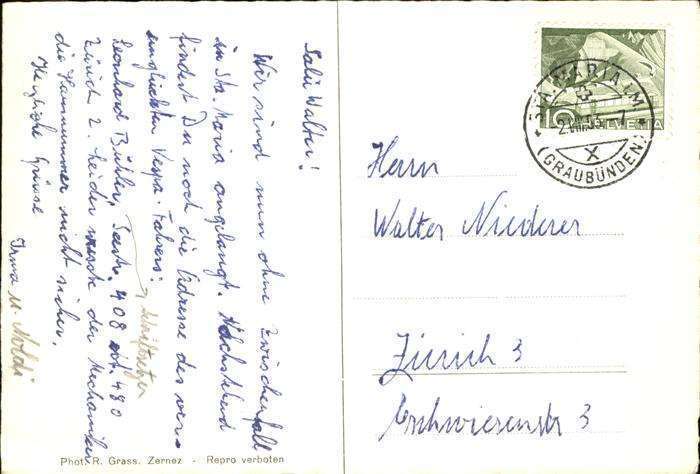 Salü Walter!
Wir sind nun ohne Zwischenfall
in Sta. Maria angelangt. Nachstehend
findest Du noch die Adresse des verun-
unglückten Vespa-Fahrers:
Leonhard Bühler, 408 480
Zürich 2. Leider wusste der Mechaniker
die Hausnummer nicht sicher.
Herzliche Grüsse
Irma u. Noldi
Phot. R. Grass. Zernez - Repro verboten
HELVETIA
10
STA. MARIA I.M.
2.VIII.53 - 7
X
(GRAUBÜNDEN)
Herrn
Walter Niederer
Zürich 3
Eschwiesenstr 3